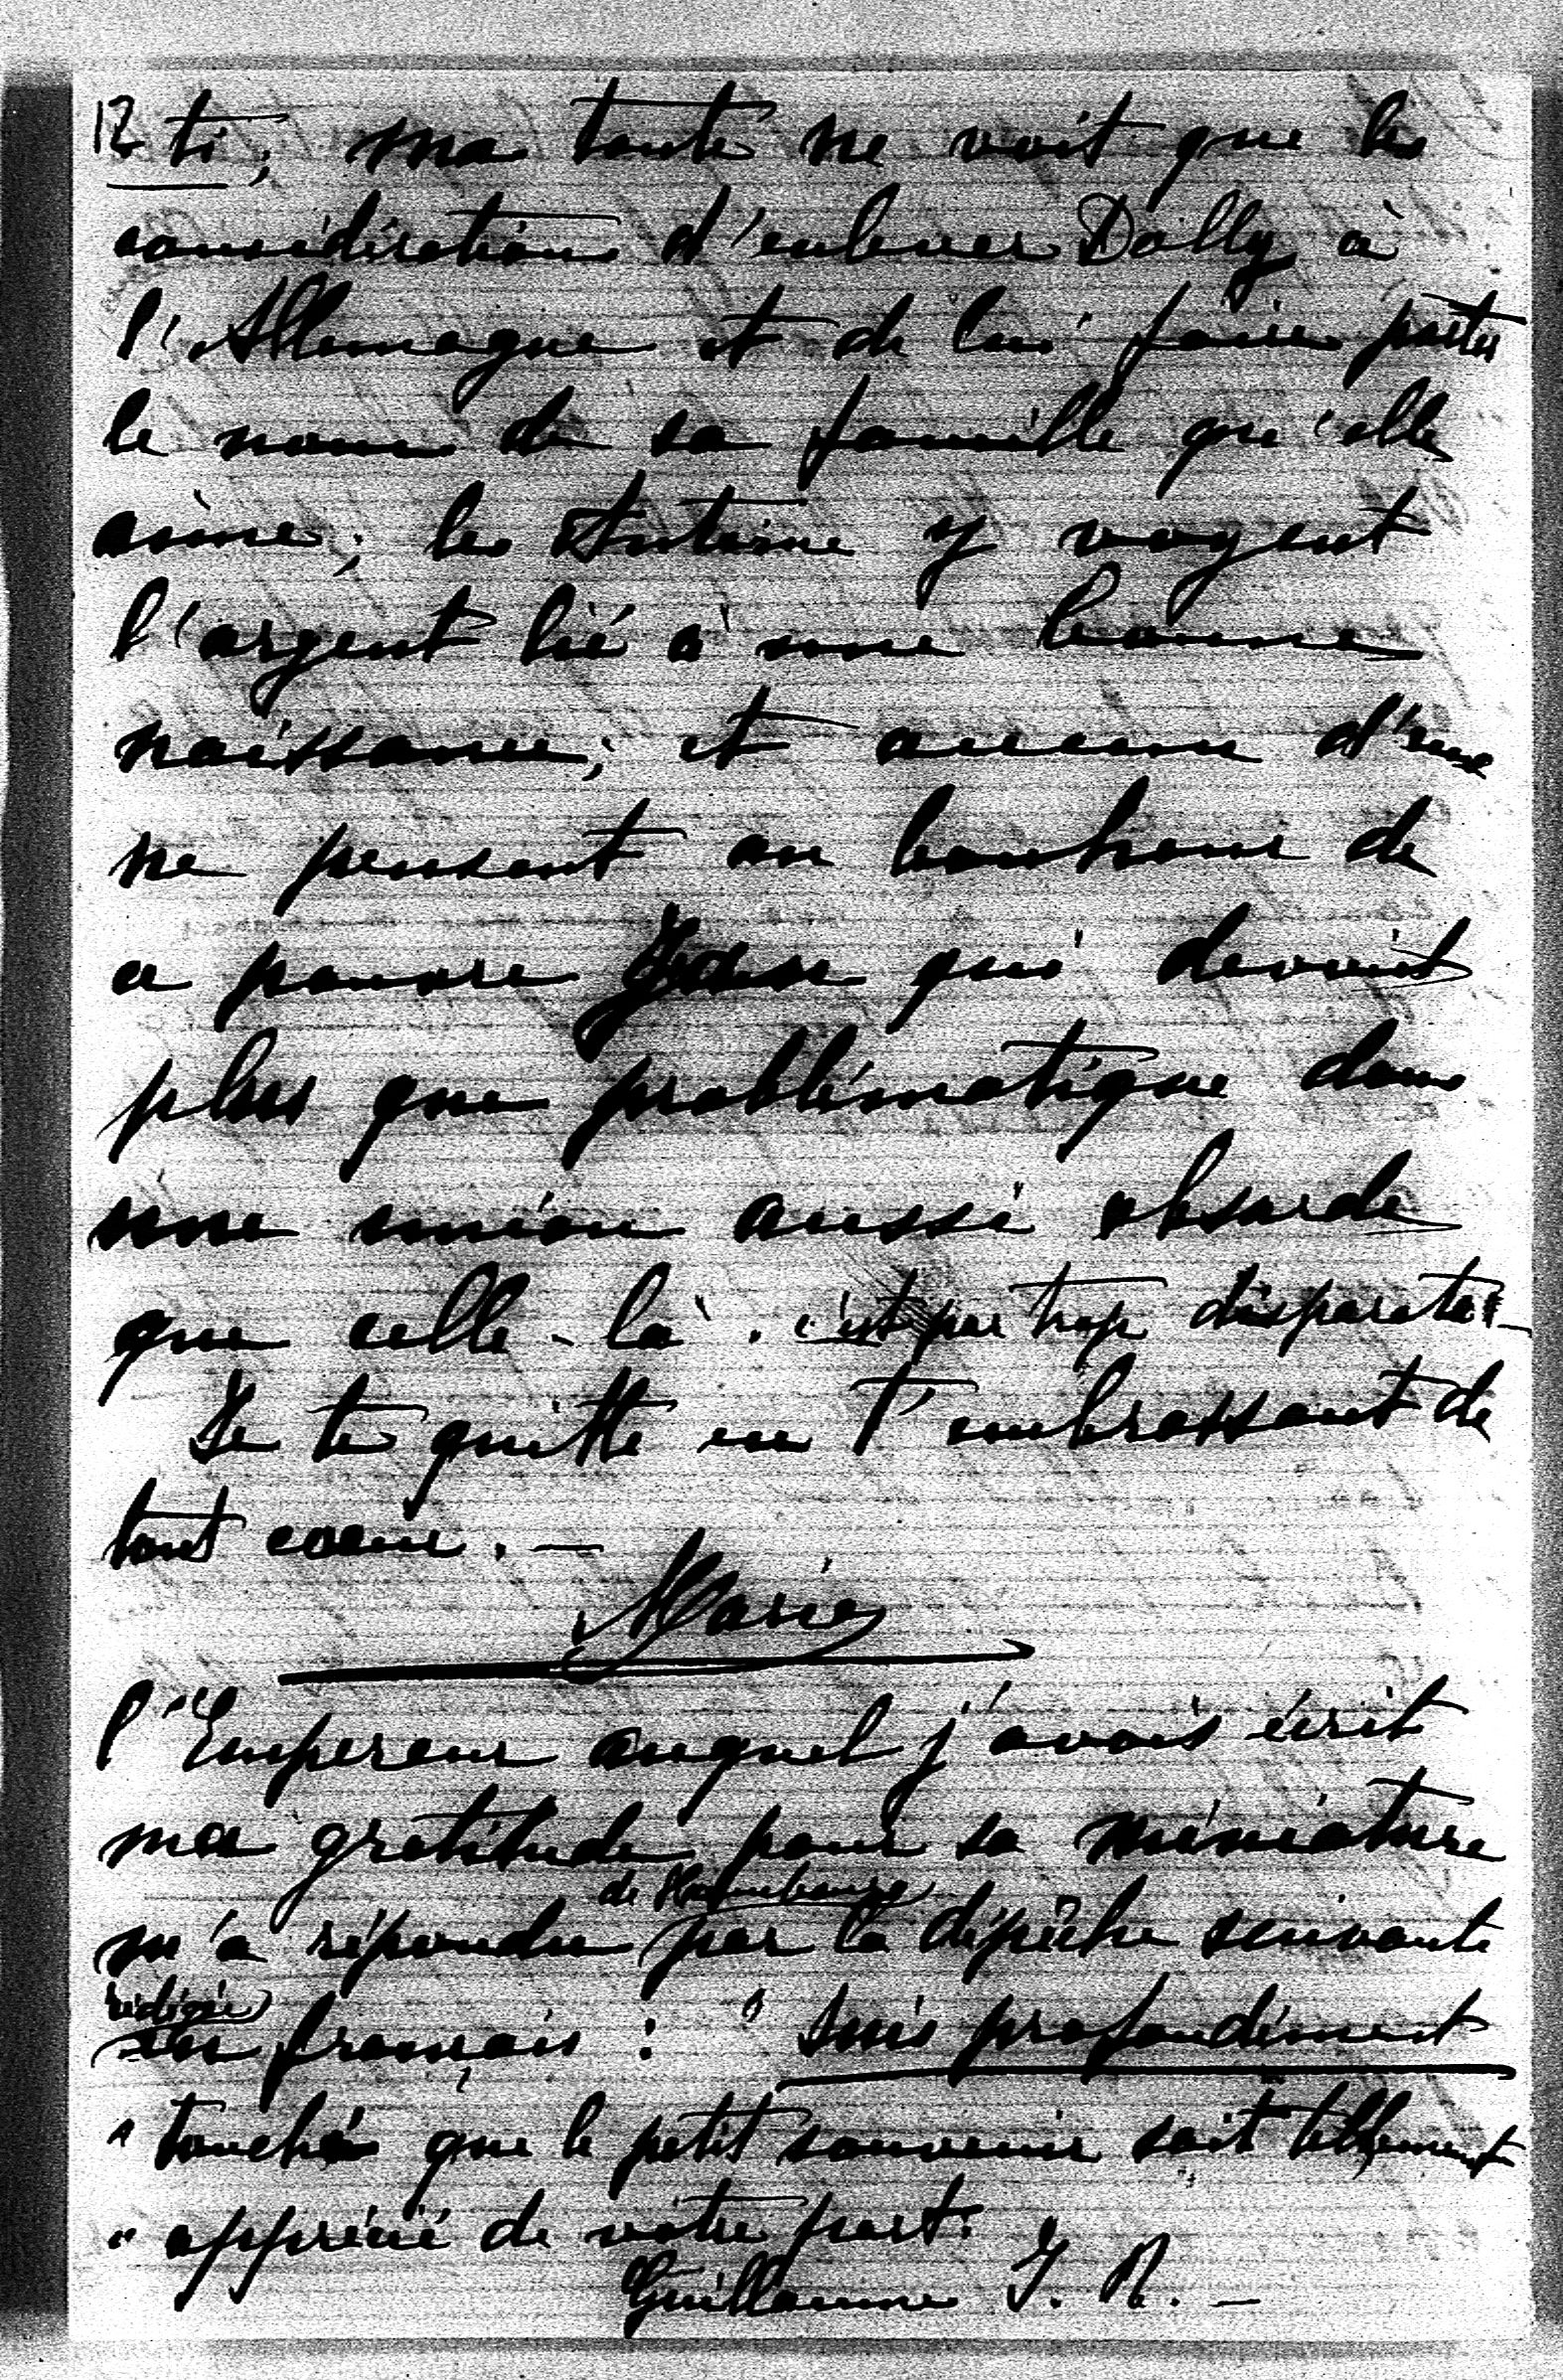 12 ti; ma tante ne voit que la
considération d'enlever Dolly à
l'Allemagne et de lui faire porter
le nom de sa famille qu'elle
aime; les Antoine y voyent
l'argent lié à une bonne
naissance; et aucun d'eux
ne pensent au bonheur de
ce pauvre Jean qui devient
plus que problématique dans
une union aussi absurde
que celle-là. c'est par trop disparate! -
Je te quitte en t'embrassant de
tout coeur. -
Marie
l'Empereur auquel j'avais écrit
ma gratitude pour sa miniature
de Hambourg
m'a répondu par la dépêche suivante
rédigée
en français: " suis profondément
" touché que le petit souvenir soit tellement
" apprécié de votre part.
Guillaume J. R. -